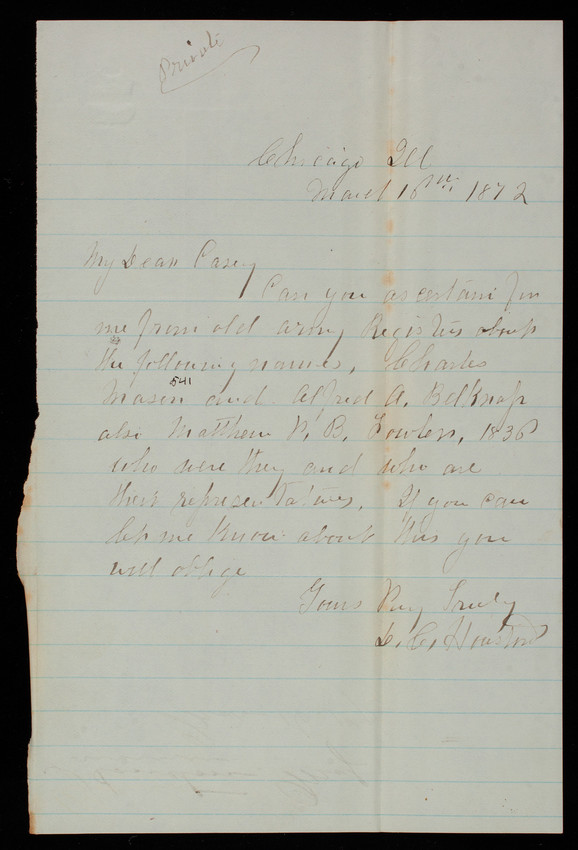 Private
Chicago Ill
March 16th 1872
My Dear Casey
Can you ascertain for
me from old army Registers about
the following names, Charles
541
Mason and Alfred A. Belknap
also Matthew B. Fowler, 1836
who were they and who are
their representatives. If you can
let me know about this you
will oblige
Yours Very Truly
D. C. Houston